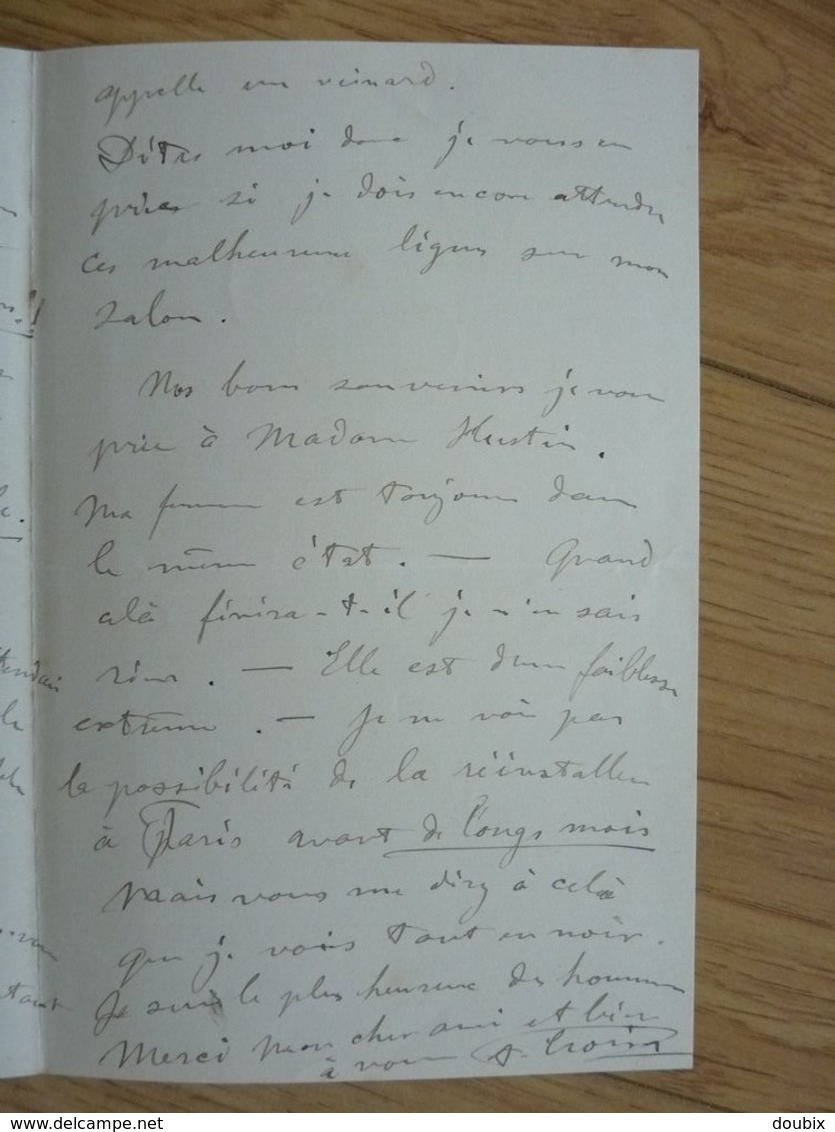 appelle un veinard.
Dites moi donc je vous en
prie si je dois encore attendre
ces malheureuses lignes sur mon
salon.
Nos bons souvenirs je vous
prie à Madame Hustin.
Ma femme est toujours dans
le même état. — Quand
celà finira-t-il je n'en sais
rien. — Elle est d'une faiblesse
extrême. — Je ne vois pas
la possibilité de la réinstaller
à Paris avant de longs mois
Mais vous me direz à celà
que je vois tout en noir.
Je suis le plus heureux des hommes
Merci mon cher ami et bien
à vous
tendais
la
tant
delcampe.net
doubix